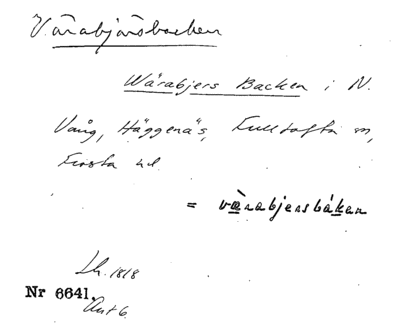 Värabjärsbacken
Wärabjers Backen i N.
Vång, Häggenäs, Fulltofta sn,
Frosta hd
= värabjersbákan
Lh. 1818
Nr 6641.
Akt 6